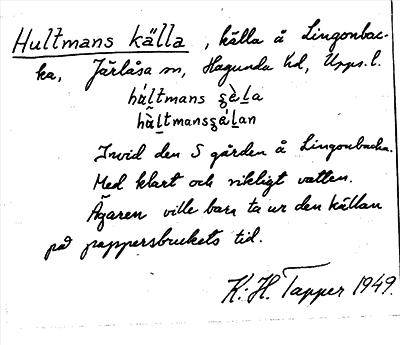 Hultmans källa, källa å Lingonbac-
ka, Järlåsa sn, Hagunda hd, Upps. l.
húltmans ʂὲla
hùltmansʂǽlan
Invid den S gården å Lingonbacka.
Med klart och rikligt vatten.
Ägaren ville bara ta ur den källan
på pappersbrukets tid.
K.H. Tapper 1949.